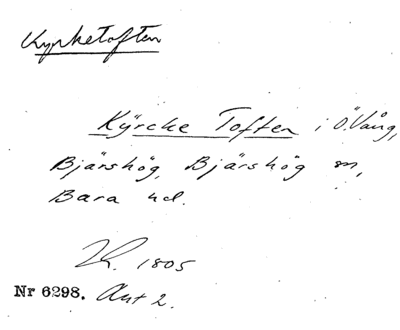 Kyrketoften
Kÿrcke Toften i Ö. Vång,
Bjärshög, Bjärshög sn,
Bara hd.
1805
Nr 6298. Akt 2.